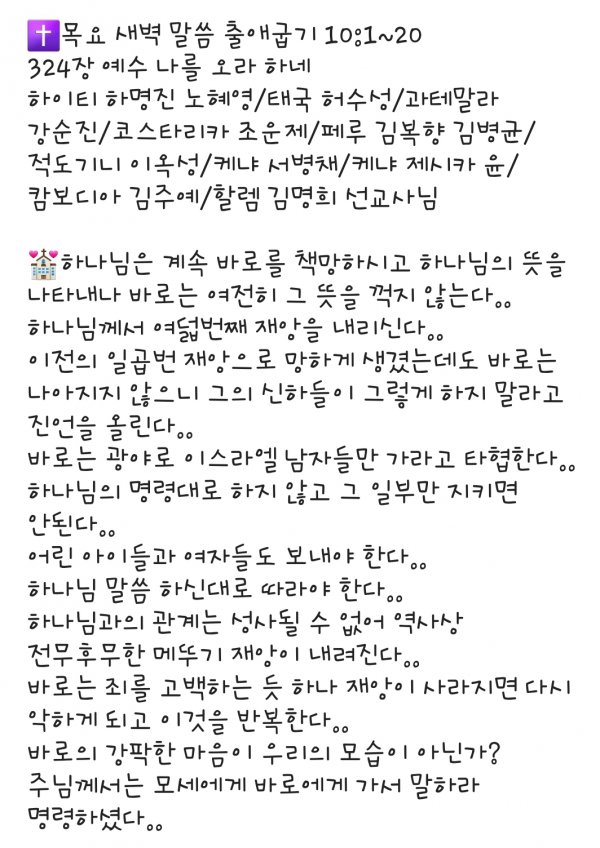 ✝️목요 새벽 말씀 출애굽기 10:1~20
324장 예수 나를 오라 하네
하이티 하명진 노혜영/태국 허수성/과테말라
강순진/코스타리카 조운제/페루 김복향 김병균/
적도기니 이옥성/케냐 서병채/케냐 제시카 윤/
캄보디아 김주예/할렘 김명희 선교사님
💒하나님은 계속 바로를 책망하시고 하나님의 뜻을
나타내나 바로는 여전히 그 뜻을 꺽지 않는다..
하나님께서 여덟번째 재앙을 내리신다..
이전의 일곱번 재앙으로 망하게 생겼는데도 바로는
나아지지 않으니 그의 신하들이 그렇게 하지 말라고
진언을 올린다..
바로는 광야로 이스라엘 남자들만 가라고 타협한다..
하나님의 명령대로 하지 않고 그 일부만 지키면
안된다..
어린 아이들과 여자들도 보내야 한다..
하나님 말씀 하신대로 따라야 한다..
하나님과의 관계는 성사될 수 없어 역사상
전무후무한 메뚜기 재앙이 내려진다..
바로는 죄를 고백하는 듯 하나 재앙이 사라지면 다시
악하게 되고 이것을 반복한다..
바로의 강팍한 마음이 우리의 모습이 아닌가?
주님께서는 모세에게 바로에게 가서 말하라
명령하셨다..